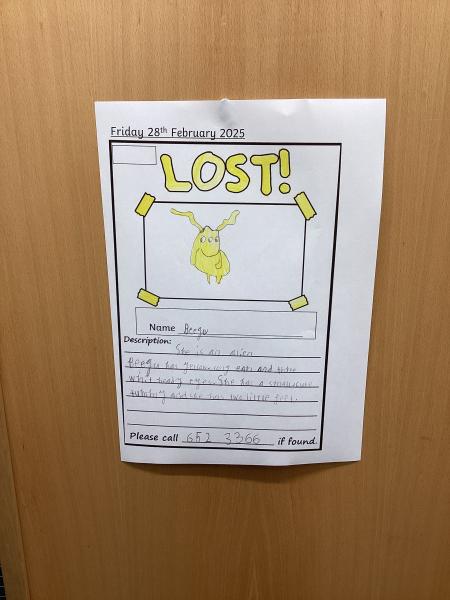 Friday 28th February 2025
LOST!
Name Beegu
Description:
She is an alien
Beegu has yellow ears and three
whit beady eyes. She has a
tummy and she has two little feet.
Please call 652 3366 if found.